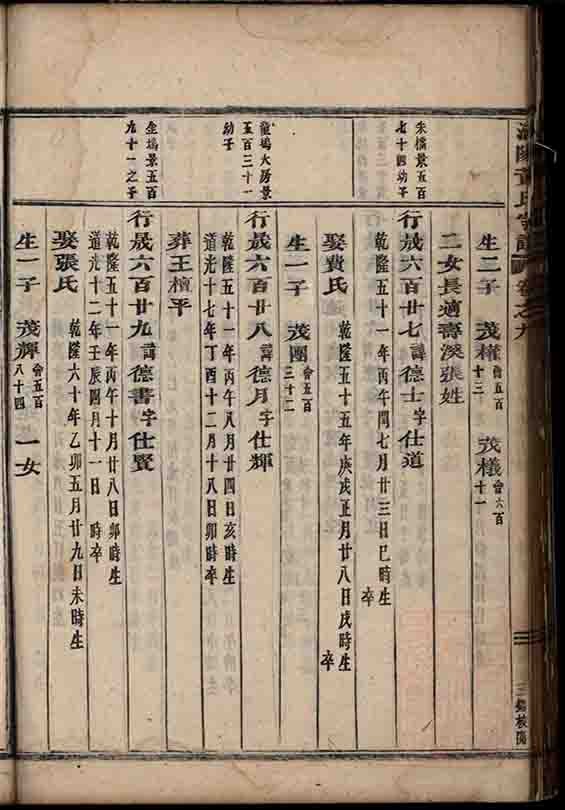 陽 氏宗譜 卷之九
生二子 茂權 會五百十三 茂檥 會六百十一
二女長適壽溪張姓
朱橋景五百七十四幼子
行晟六百廿七諱德士字仕道
乾隆五十一年丙午閏七月廿三日巳時生 卒
娶費氏 乾隆五十五年庚戌正月廿八日戌時生 卒
生一子 茂團 會五百三十二
龍塢大房景五百三十一幼子
行晟六百廿八諱德月字仕輝
乾隆五十一年丙午八月廿四日亥時生
道光十七年丁酉十二月十八日卯時卒
葬王檀平
坐塢景五百九十一之子
行晟六百廿九諱德書字仕賢
乾隆五十一年丙午十月廿八日卯時生
道光十二年壬辰四月十一日 時卒
娶張氏 乾隆六十年乙卯五月廿九日未時生
生一子 茂輝 會五百八十四 一女